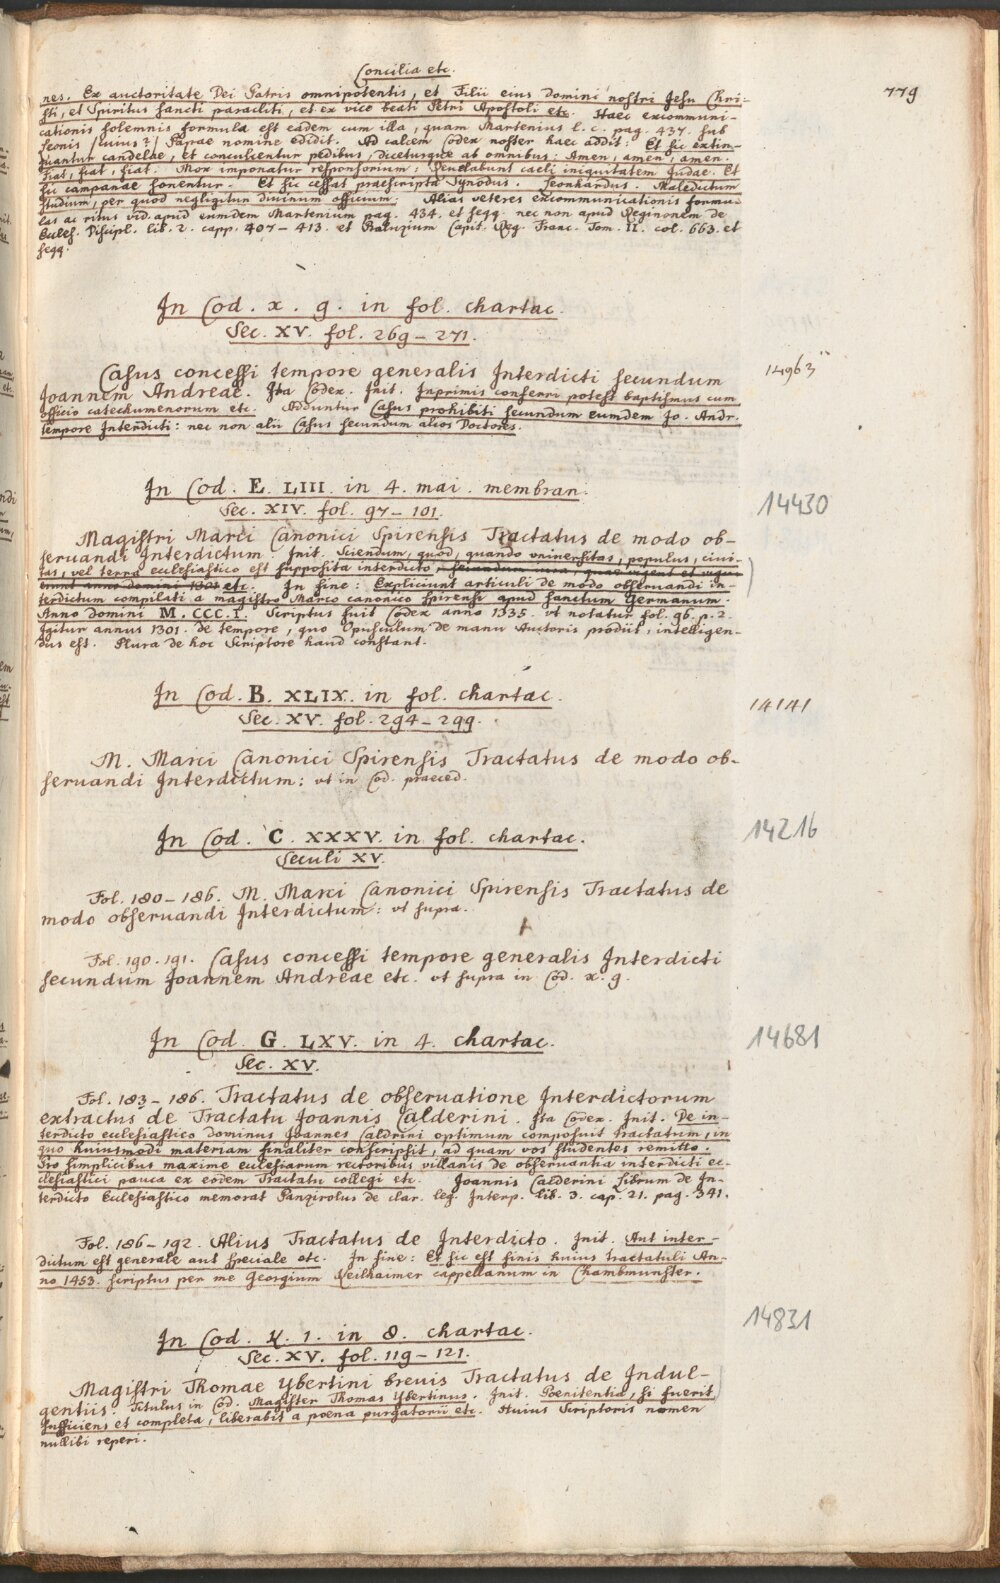 Concilia etc.
779
nes. Ex auctoritate Dei Patris omnipotentis, et Filii eius Domini nostri Jesu Chri-
sti, et Spiritus sancti paracliti, et ex vice beati Petri Apostoli etc. Haec excommuni-
cationis solemnis formula est eadem cum illa, quam Martenius l. c. pag. 437. sub
Leonis (cuius?) Papae nomine edidit. Ad calcem Codex noster haec addit: Et sic extin-
guantur candelae, et conculcentur pedibus, diceturque ab omnibus: Amen, amen, amen.
Fiat, fiat, fiat. Mox imponatur responsorium: Revelabunt caeli iniquitatem Judae. Et
sic campanae sonentur. Et sic cessat praescripta Synodus. Leonhardus. Maledictum
studium, per quod negligitur divinum officium. Alias veteres excommunicationis formu-
las ac ritus vid. apud eumdem Martenium pag. 434. et seqq. nec non apud Reginonem de
Eccles. Discipl. lib. 2. capp. 407–413. et Baluzium Capit. Reg. Franc. Tom. II. col. 663. et
seqq.
In Cod. x. 9. in fol. chartac.
Sec. XV. fol. 269–271.
14963
Casus concessi tempore generalis Interdicti secundum
Joannem Andreae. Ita Codex. Init. Inprimis conferri potest baptismus cum
officio catechumenorum etc. Adduntur Casus prohibiti secundum eumdem Jo. Andr.
tempore Interdicti: nec non alii Casus secundum alios Doctores.
In Cod. E. LIII. in 4. mai. membran.
Sec. XIV. fol. 97–101.
14430
Magistri Marci Canonici Spirensis Tractatus de modo ob-
seruandi Interdictum. Init. Sciendum, quod, quando vniuersitas, populus, ciui-
tas, vel terra ecclesiastico est supposita interdicto
etc. In fine: Expliciunt articuli de modo obseruandi in-
terdictum compilati a magistro Marco canonico Spirensi apud sanctum Germanum.
Anno Domini M. CCC. I. Scriptus fuit Codex anno 1335. vt notatur fol. 96. p. 2.
Igitur annus 1301. de tempore, quo Opusculum de manu Auctoris prodiit, intelligen-
dus est. Plura de hoc Scriptore haud constant.
In Cod. B. XLIX. in fol. chartac.
Sec. XV. fol. 294–299.
14141
M. Marci Canonici Spirensis Tractatus de modo ob-
seruandi Interdictum: vt in Cod. praeced.
In Cod. C. XXXV. in fol. chartac.
Seculi XV.
14216
Fol. 180–186. M. Marci Canonici Spirensis Tractatus de
modo obseruandi Interdictum: vt supra.
Fol. 190. 191. Casus concessi tempore generalis Interdicti
secundum Joannem Andreae etc. vt supra in Cod. x. 9.
In Cod. G. LXV. in 4. chartac.
Sec. XV.
14681
Fol. 183–186. Tractatus de obseruatione Interdictorum
extractus de Tractatu Joannis Calderini. Ita Codex. Init. De in-
terdicto ecclesiastico dominus Joannes Caldrini optimum composuit tractatum, in
quo huiusmodi materiam finaliter conscripsit, ad quam vos studentes remitto.
Pro simplicibus maxime ecclesiarum rectoribus villanis de obseruantia interdicti ec-
clesiastici pauca ex eodem Tractatu collegi etc. Joannis Calderini Librum de In-
terdicto Ecclesiastico memorat Panzirolus de clar. leg. Interp. lib. 3. cap. 21. pag. 341.
Fol. 186–192. Alius Tractatus de Interdicto. Init. Aut inter-
dictum est generale aut speciale etc. In fine: Et sic est finis huius tractatuli An-
no 1453. scriptus per me Georgium Keilhaimer cappellanum in Chambmunster.
14831
In Cod. 4. 1. in 8. chartac.
Sec. XV. fol. 119–121.
Magistri Thomae Ybertini breuis Tractatus de Indul-
gentiis. Titulus in Cod. Magister Thomas Ybertinus. Init. Poenitentia, si fuerit
sufficiens et completa, liberabit a poena purgatorii etc. Huius Scriptoris nomen
nullibi reperi.